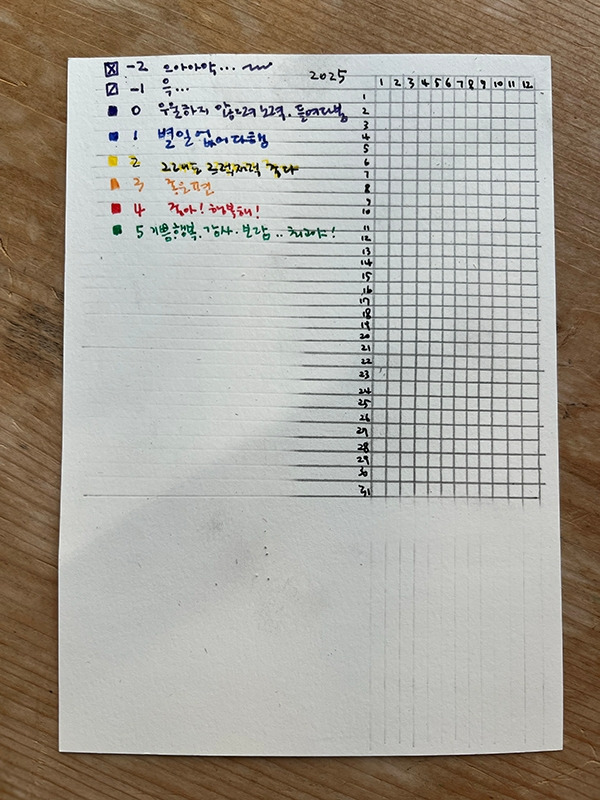 -2 으아아악...
-1 윽...
2025
0 우울하지 않으려 노력. 들여다봄
1 별일 없어 다행
2 그래도 그럭저럭 좋다
3 좋은편
4 좋아! 행복해!
5 기쁨.행복.감사.보람.. 최고야!
1 2 3 4 5 6 7 8 9 10 11 12
1
2
3
4
5
6
7
8
9
10
11
12
13
14
15
16
17
18
19
20
21
22
23
24
25
26
27
28
29
30
31